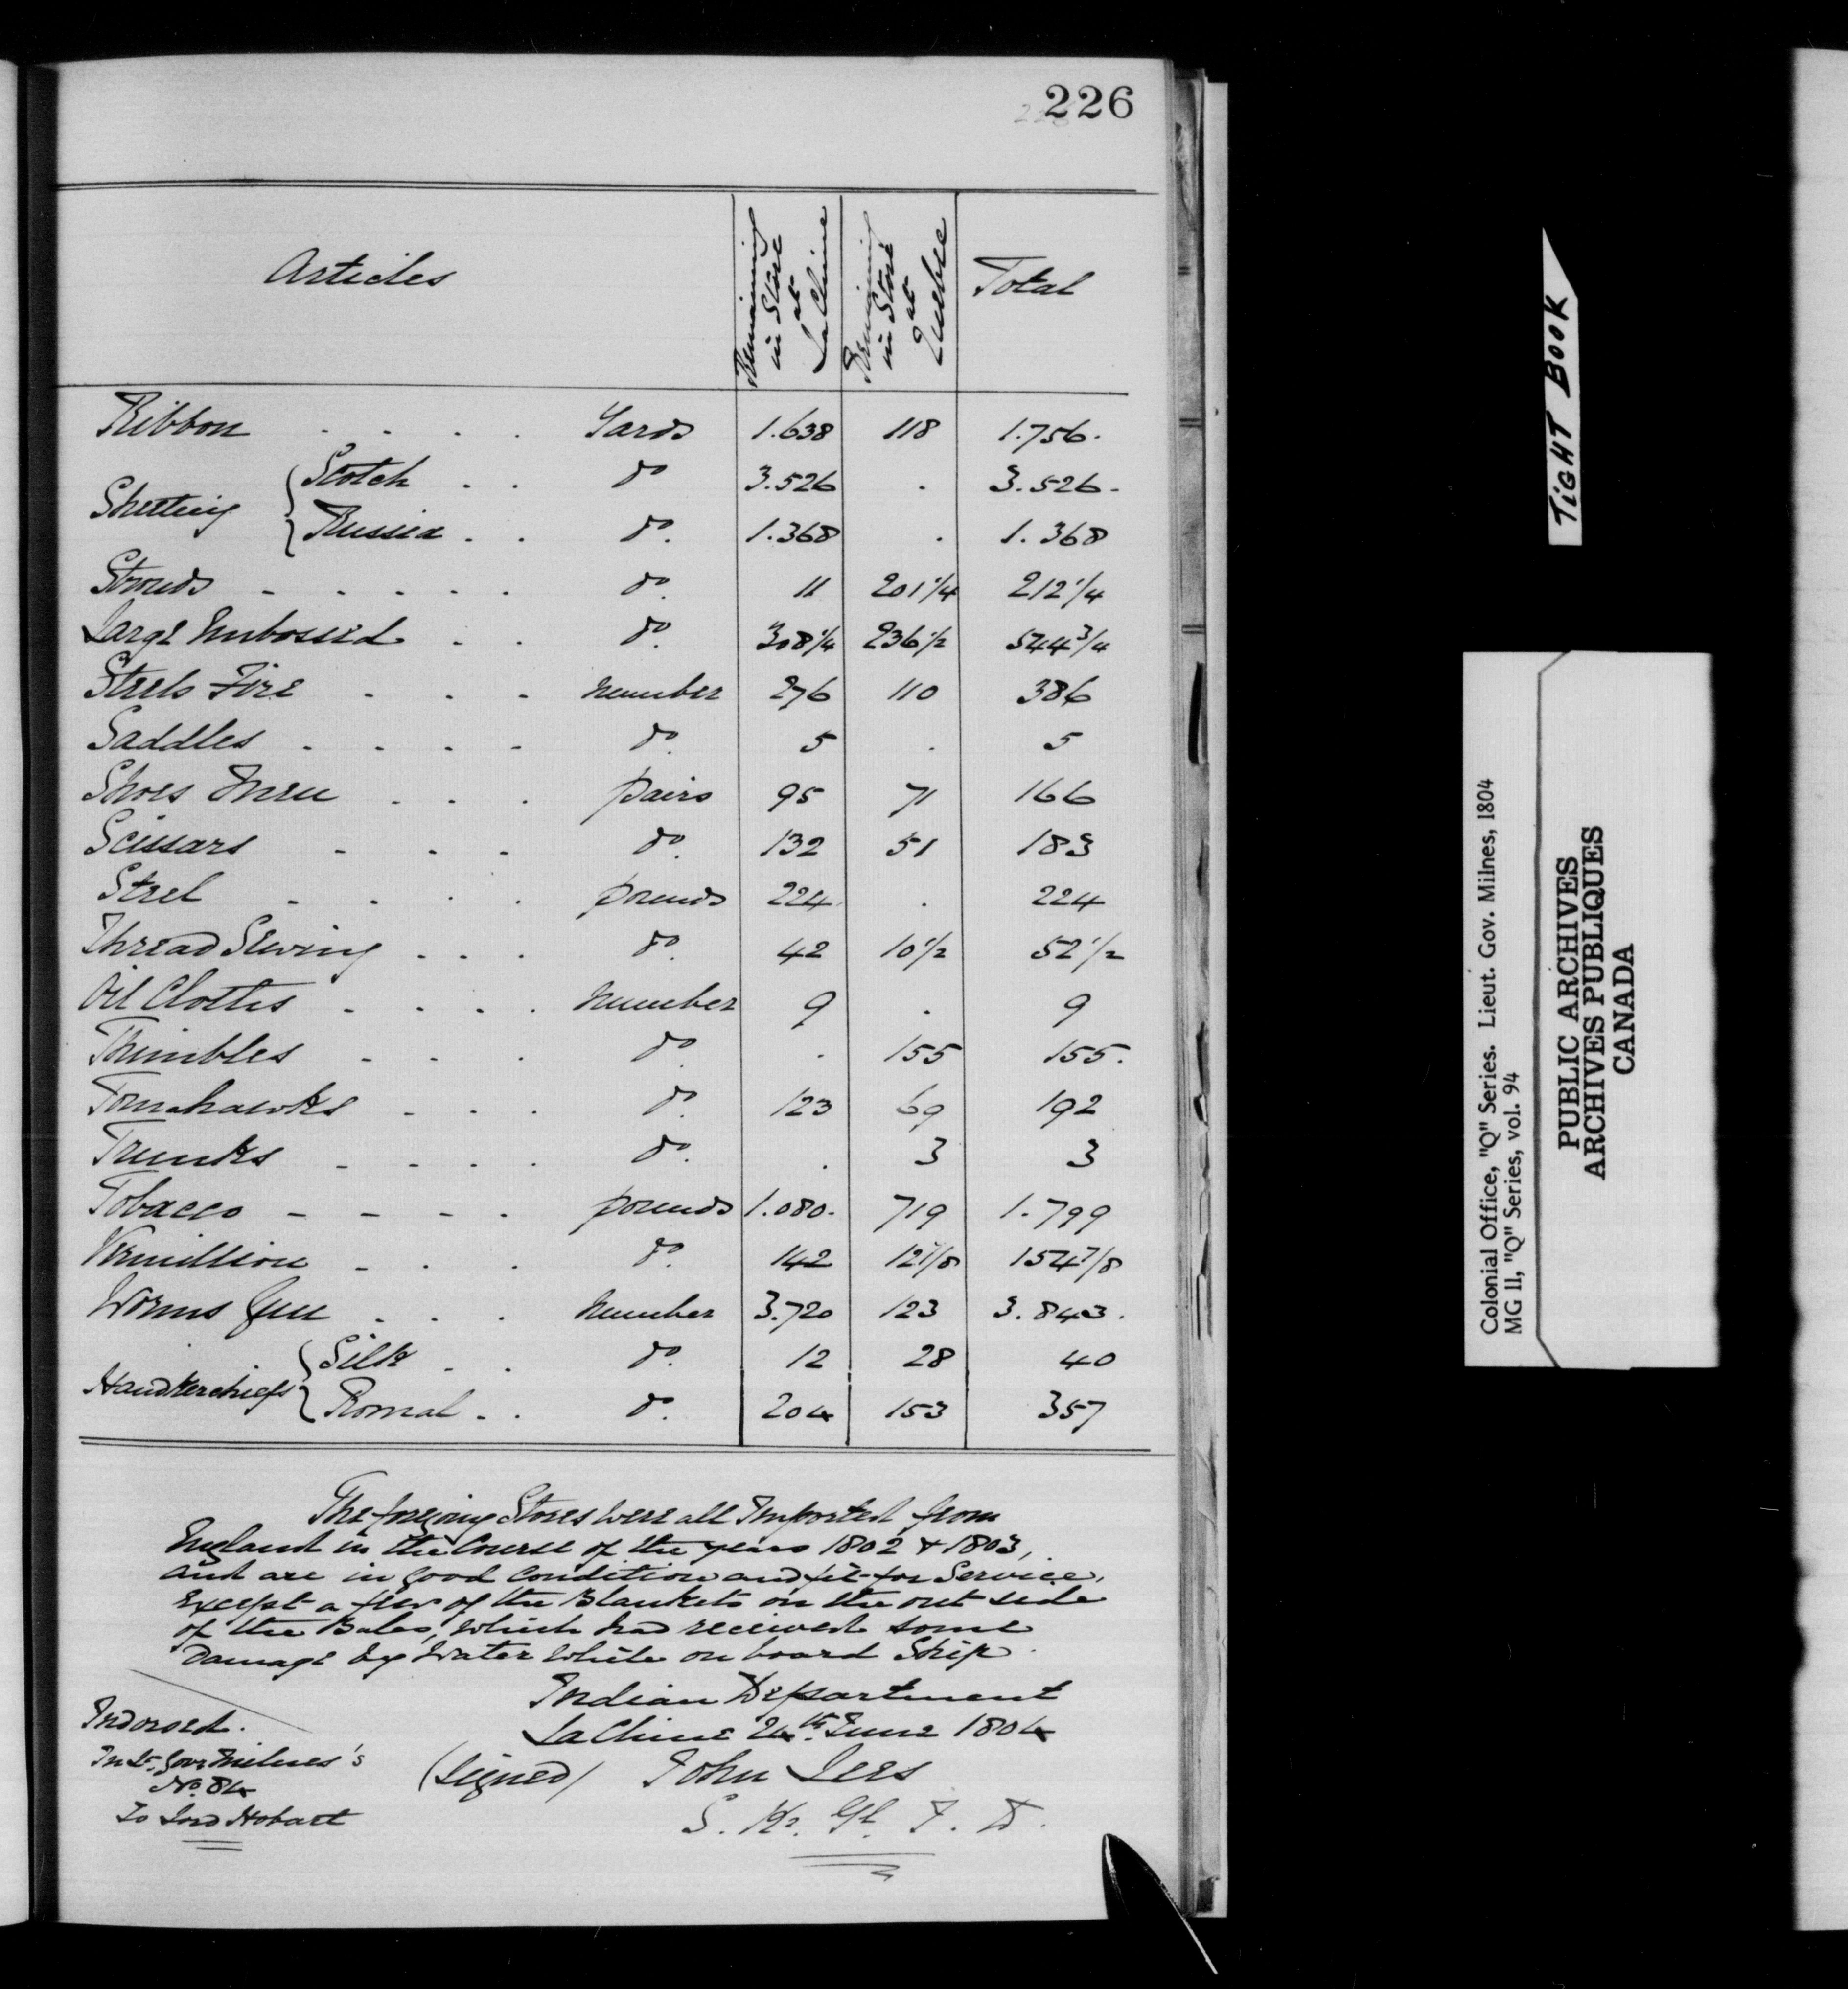 226
Articles
Remaining in Store at LaChine
Remaining in Store at Quebec
Total
Ribbon . . . . Yards 1.638 118 1.756.
Sheeting { Scotch . . do 3.526 . 3.526.
{ Russia . . do. 1.368 . 1.368
Strouds - - - - . do. 11 201 1/4 212 1/4
Large Embossed . . do. 308 1/4 236 1/2 544 3/4
Steels Fire - - - number 276 110 386
Saddles - - - - do. 5 . 5
Shoes Men . . . pairs 95 71 166
Scissars - - - do. 132 51 183
Steel - - . . pounds 224 . 224
Thread Sewing . . . do. 42 10 1/2 52 1/2
Oil Cloths - . . . number 9 . 9
Thimbles - - . do. . 155 155.
Tomahawks - - . do. 123 69 192
Trunks - - - . do. . 3 3
Tobacco - - - . pounds 1.080. 719 1.799
Vermillion - . . do. 142 12 7/8 154 7/8
Worms Gun . . . number 3.720 123 3.843.
Handkerchiefs { Silk . . do. 12 28 40
{ Romal . . do. 204 153 357
The foregoing Stores were all Imported from
England in the Course of the years 1802 & 1803,
and are in good Condition and fit for Service,
Except a few of the Blankets on the out side
of the Bales, which had received some
Damage by Water while on board Ship.
Indian Department
LaChine 24th June 1804
(Signed) John Lees
S. Kr. Gl. I. D.
Indorsed.
In Lt. Govr Milnes's
No. 84
To Lord Hobart
TIGHT BOOK
Colonial Office, "Q" Series. Lieut. Gov. Milnes, 1804
MG 11, "Q" Series, vol. 94
PUBLIC ARCHIVES
ARCHIVES PUBLIQUES
CANADA